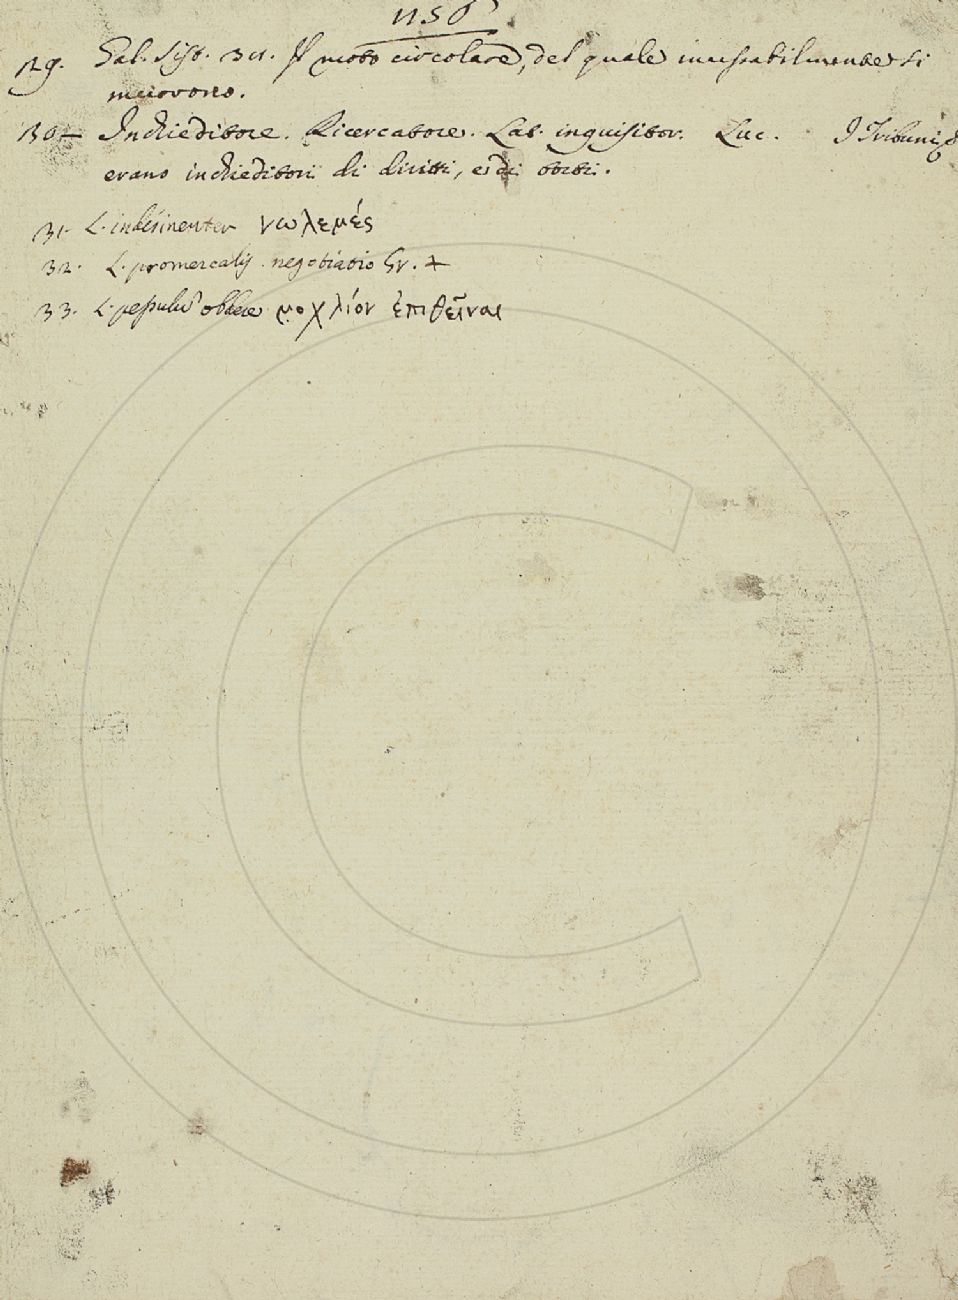 1156
29. Gal. Sist. 311. Il moto circolare, del quale incessabilmente si
muovono.
30 – Inchieditore. Ricercatore. Lat. inquisitor. Luc. I Tribuni
erano inchieditori di diritti, e di
31. L. indesinenter νωλεμές
32. L. promercalis negotiatio Gr. +
33. L. pessulū obdere μοχλίον ἐπιθεῖναι